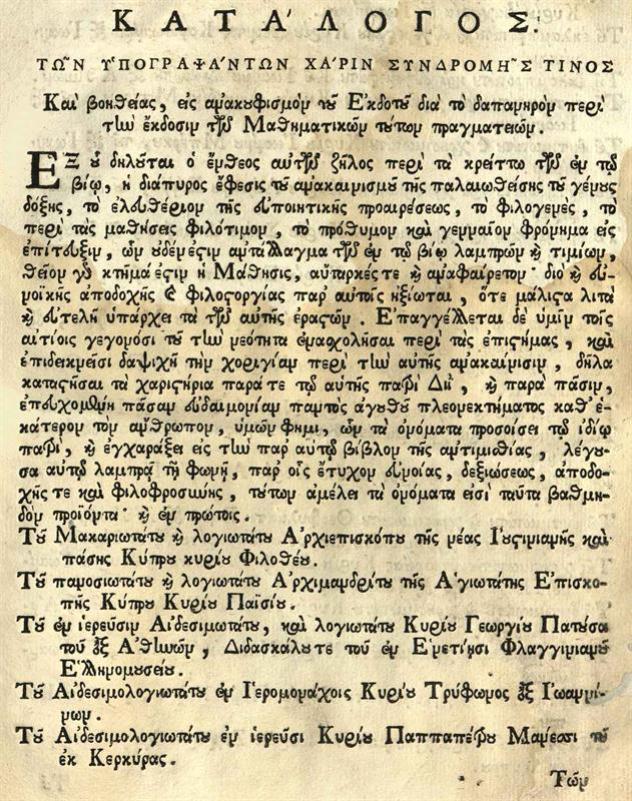 ΚΑΤΑ'ΛΟΓΟΣ.
ΤΩ͂Ν ΥΠΟΓΡΑΨΑ'ΝΤΩΝ ΧΑ'ΡΙΝ ΣΥΝΔΡΟΜΗ͂Σ ΤΙΝΟΣ
Καὶ βοηθείας, εἰς ἀνακουφισμὸν τοῦ Ἐκδότου διὰ τὸ δαπανηρὸν περὶ
τὴν ἔκδοσιν τῶν Μαθηματικῶν τούτων πραγματειῶν.
ΕΞ οὗ δηλοῦται ὁ ἔνθεος αὐτῶν ζῆλος περὶ τὰ κρείττω τῶν ἐν τῷ
βίῳ, ἡ διάπυρος ἔφεσις τοῦ ἀνακαινισμοῦ τῆς παλαιωθείσης τοῦ γένους
δόξης, τὸ ἐλευθέριον τῆς εὐποιητικῆς προαιρέσεως, τὸ φιλογενὲς, τὸ
περὶ τὰς μαθήσεις φιλότιμον, τὸ πρόθυμον καὶ γενναῖον φρόνημα εἰς
ἐπίτευξιν, ὧν οὐδέν ἐστιν ἀντάλλαγμα τῶν ἐν τῷ βίῳ λαμπρῶν καὶ τιμίων,
θεῖον γὰρ κτῆμά ἐστιν ἡ Μάθησις, αὔταρκές τε καὶ ἀναφαίρετον· διὸ καὶ εὐ-
νοϊκῆς ἀποδοχῆς καὶ φιλοστοργίας παρ' αὐταῖς ἠξίωται, ὅτε μάλιστα λιτὰ
καὶ εὐτελῆ ὑπάρχει τὰ τῶν αὐτῆς ἐραστῶν. Ἐπαγγέλλεται δὲ ὑμῖν τοῖς
αἰτίοις γεγονόσι τοῦ τὴν νεότητα ἐνασχολῆσαι περὶ τὰς ἐπιστήμας, καὶ
ἐπιδεικνεῖσι δαψιλῆ τὴν χορηγίαν περὶ τὴν αὐτῆς ἀνακαίνισιν, δῆλα
καταστῆσαι τὰ χαριστήρια παρά τε τῷ αὐτῆς πατρὶ Διῒ, καὶ παρὰ πᾶσιν,
ἐπευχομένη πᾶσαν εὐδαιμονίαν παντὸς ἀγαθοῦ πλεονεκτήματος καθ' ἑ-
κάτερον τὸν ἄνθρωπον, ὑμῶν φημι, ὧν τὰ ὀνόματα προσοίσει τῷ ἰδίῳ
πατρὶ, καὶ ἐγχαράξει εἰς τὴν παρ' αὐτῷ βίβλον τῆς ἀντιμισθίας, λέγου-
σα αὐτῷ λαμπρᾷ τῇ φωνῇ, παρ' οἷς ἔτυχον εὐνοίας, δεξιώσεως, ἀποδο-
χῆς τε καὶ φιλοφροσύνης, τούτων ἀμέλει τὰ ὀνόματα εἰσὶ ταῦτα βαθμη-
δὸν προϊόντα· καὶ ἐν πρώτοις.
Τοῦ Μακαριωτάτου καὶ λογιωτάτου Ἀρχιεπισκόπου τῆς νέας Ἰουστινιανῆς καὶ
πάσης Κύπρου κυρίου Φιλοθέου.
Τοῦ πανοσιωτάτου καὶ λογιωτάτου Ἀρχιμανδρίτου τῆς Ἁγιωτάτης Ἐπισκο-
πῆς Κύπρου Κυρίου Παϊσίου.
Τοῦ ἐν ἱερεῦσιν Αἰδεσιμωτάτου, καὶ λογιωτάτου Κυρίου Γεωργίου Πατούσα
τοῦ ἐξ Ἀθηνῶν, Διδασκάλου τε τοῦ ἐν Ἐνετίῃσι Φλαγγινιανοῦ
Ἑλληνομουσείου.
Τοῦ Αἰδεσιμολογιωτάτου ἐν Ἱερομονάχοις Κυρίου Τρύφωνος ἐξ Ἰωαννί-
νων.
Τοῦ Αἰδεσιμολογιωτάτου ἐν ἱερεῦσι Κυρίου Παππαπέτρου Μανεσσι τοῦ
ἐκ Κερκύρας.
Τῶν